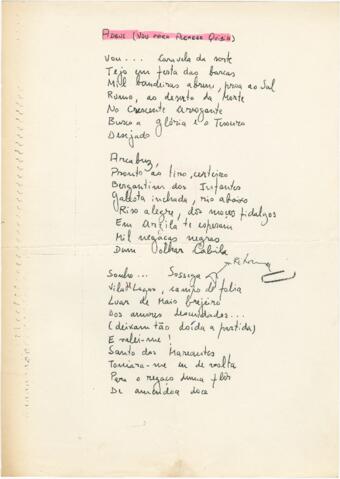 Adeus (Vou para Alcácer Quibir)
Vou... Caravela da sorte
Tejo em festa das barcas
Mil bandeiras abrem, proa ao Sal
Rumo, ao deserto da Morte
No Crescente Arrogante
Busco a glória e o Tesouro
Desejado
Arcabuz,
Pronto ao tiro, certeiro
Bergantim dos Infantes
Galeota inchada, rio abaixo
Riso alegre, dos moços fidalgos
Em Arzila te esperam
Mil negaças negras
Dum olhar Cabila
Refrão
Sonho... Sossega
Vila Lagos, campo de folia
Luar de Maio brejeiro
Dos amores desnudados...
(deixam tão doída a partida)
E valei-me!
Santo dos Mareantes
Tomara-me eu de volta
Para o regaço duma flôr
De amêndoa doce